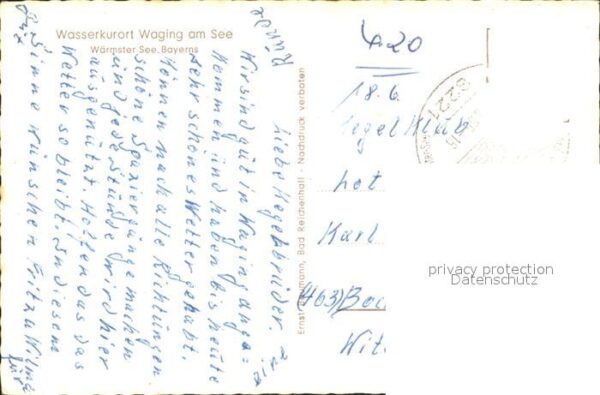 Wasserkurort Waging am See
Wärmster See Bayerns
Liebe Kegelbrüder.
Wir sind gut in Waging ange=
kommen und haben bis heute
sehr schönes Wetter gehabt.
Können nach alle Richtungen
schöne Spaziergänge machen
und jede Stunde wird hier
ausgenützt. Hoffen das das
Wetter so bleibt. In diesem
Sinne wünschen Fritz u Wilma
Ernst Baumann, Bad Reichenhall - Nachdruck verboten
420
18.6
Kegel Klub
Karl
(463) Boc
Wit
8221
privacy protection
Datenschutz